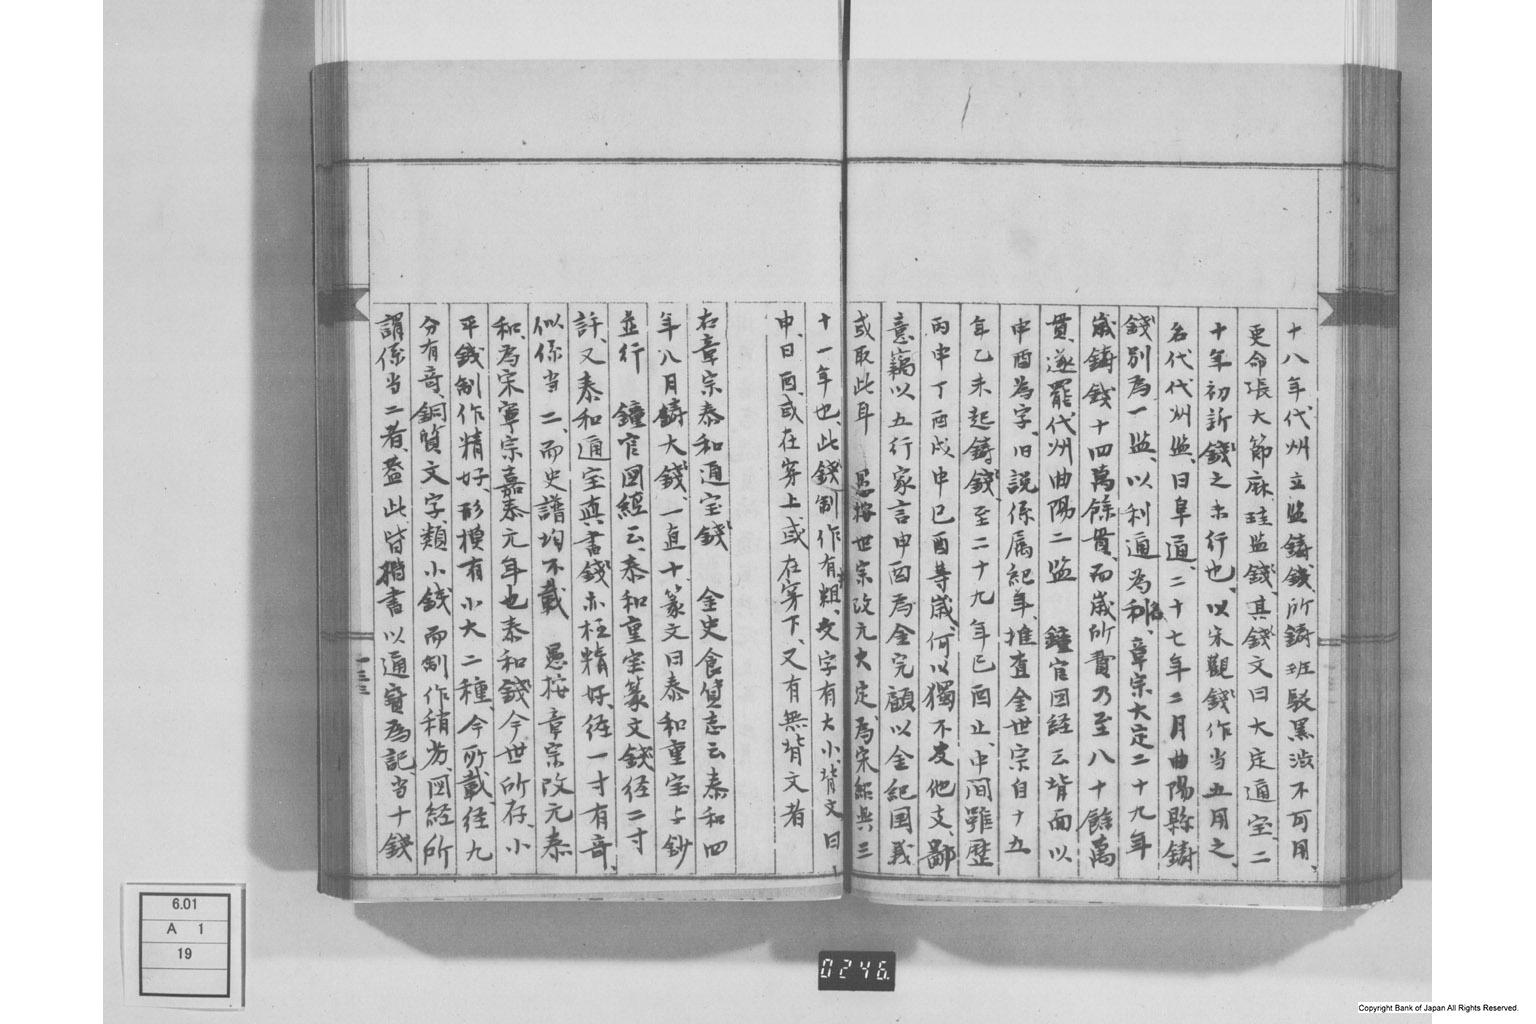 十八年、代州立监鋳錢、所鋳班駁黒渋不可用、
更命張大節麻珪监錢、其錢文曰大定通宝、二
十年初新錢之未行也、以宋觀錢作当五用之、
名代代州监、曰阜通、二十七年二月曲陽縣鋳
錢別為一监、以利通為名、章宗大定二十九年
歳鋳錢十四萬餘貫、而歳所費乃至八十餘萬
貫、遂罷代州曲陽二监　鐘官図経云背面以
申酉為字、旧説係属紀年、推査金世宗自十五
年乙未起鋳錢、至二十九年己酉止、中间雖歴
丙申丁酉戊申己酉等歳、何以獨不及他支、鄙
意竊以五行家言申酉為金、完顔以金紀国義
或取此耳　愚按世宗改元大定、為宋紹興三
十一年也、此錢制作有精粗、文字有大小、背文曰
申、曰酉、或在穿上、或在穿下、又有無背文者
右章宗泰和通宝錢　金史食貨志云泰和四
年八月鋳大錢、一直十、篆文曰泰和重宝与鈔
並行　鐘官図経云、泰和重宝篆文錢径二寸
許、又泰和通宝真書錢亦極精好、径一寸有奇、
似係当二、而史譜均不載　愚按章宗改元泰
和、為宋寧宗嘉泰元年也泰和錢今世所存、小
平錢制作精好、形模有小大二種、今所載、径九
分有奇、銅質文字類小錢而制作稍劣、図経所
謂係当二者、蓋此、皆楷書以通寶為記、当十錢
一三三
0246
6.01
A 1
19
Copyright Bank of Japan All Rights Reserved.